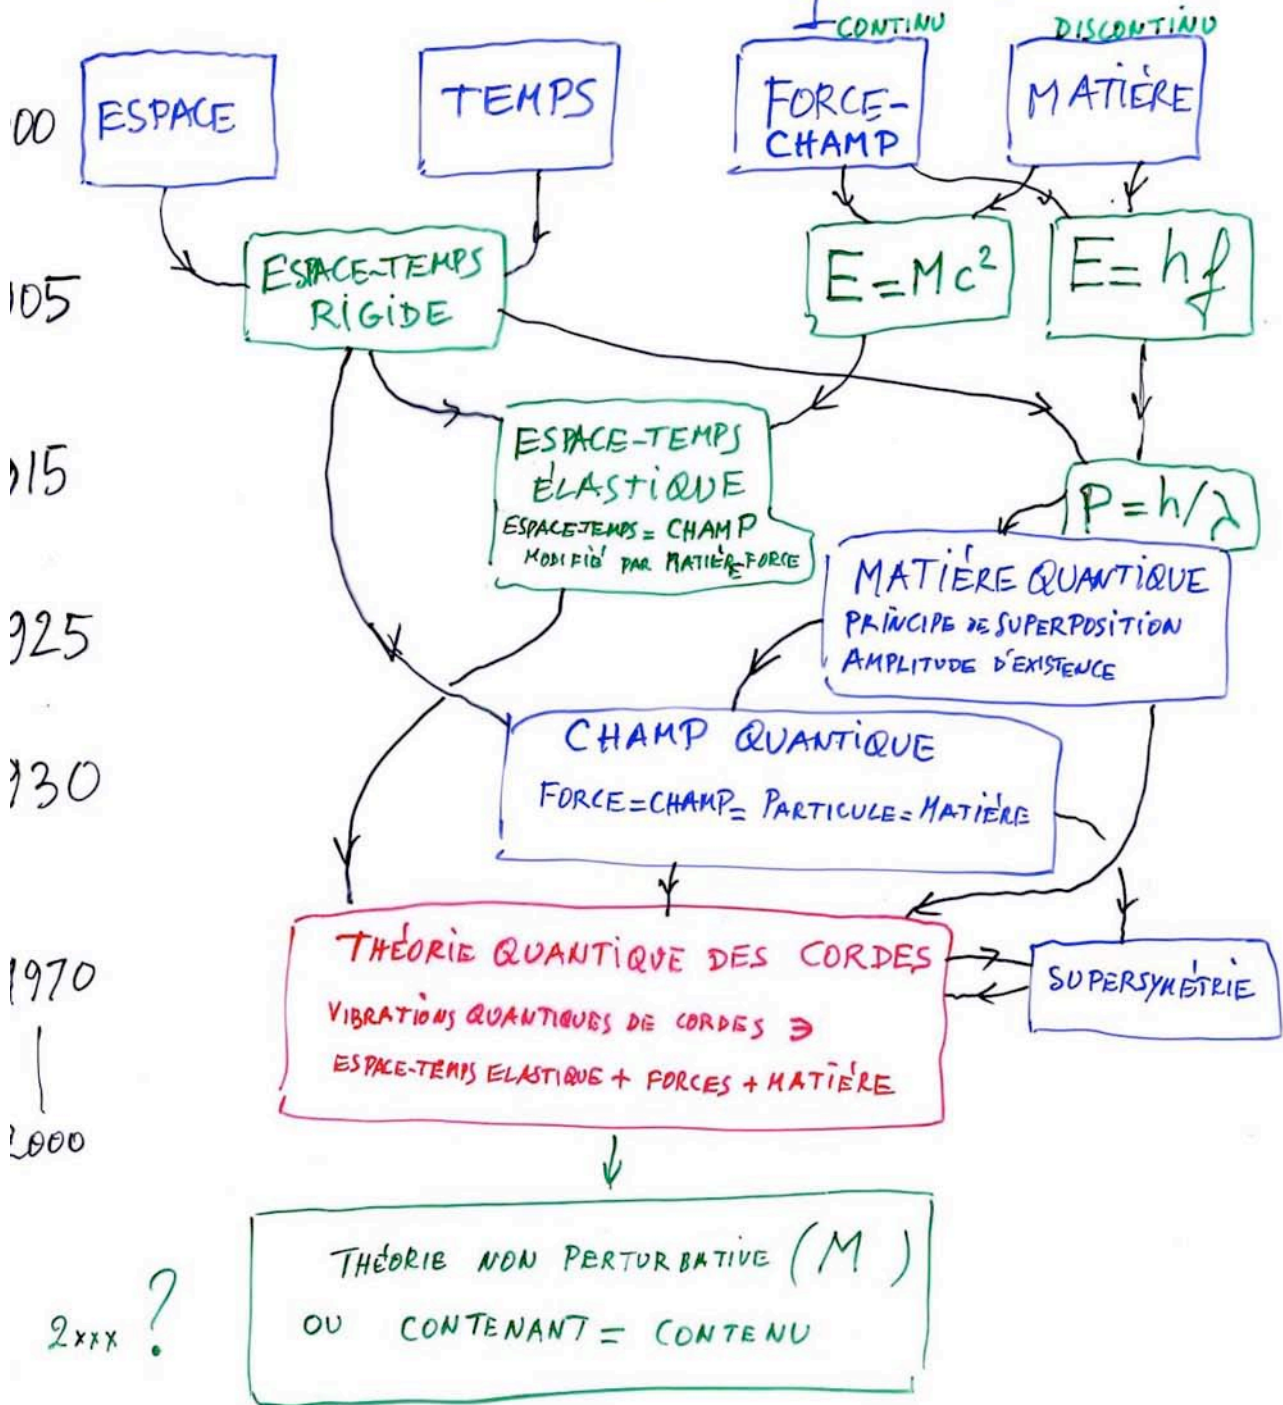 CONTINU
DISCONTINU
00
ESPACE
TEMPS
FORCE-
CHAMP
MATIÈRE
05
ESPACE-TEMPS
RIGIDE
E=Mc²
E=hf
15
ESPACE-TEMPS
ÉLASTIQUE
ESPACE-TEMPS = CHAMP
MODIFIÉ PAR MATIÈRE-FORCE
P=h/λ
925
MATIÈRE QUANTIQUE
PRINCIPE DE SUPERPOSITION
AMPLITUDE D'EXISTENCE
930
CHAMP QUANTIQUE
FORCE=CHAMP=PARTICULE=MATIÈRE
1970
THÉORIE QUANTIQUE DES CORDES
VIBRATIONS QUANTIQUES DE CORDES ∋
ESPACE-TEMPS ELASTIQUE + FORCES + MATIÈRE
SUPERSYMÉTRIE
2000
2xxx ?
THÉORIE NON PERTURBATIVE (M )
OU CONTENANT = CONTENU